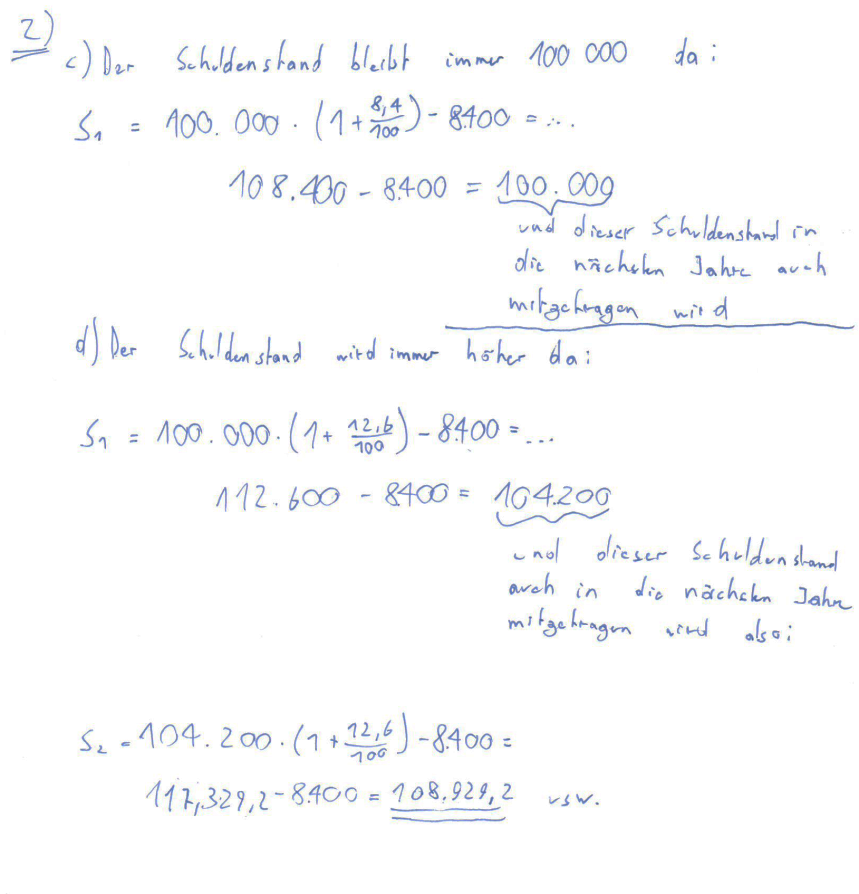 2)
c) Der Schuldenstand bleibt immer 100 000 da:
S₁ = 100.000 · (1 + 8,4/100) - 8.400 = ...
108.400 - 8.400 = 100.000
und dieser Schuldenstand in
die nächsten Jahre auch
mitgetragen wird
d) Der Schuldenstand wird immer höher da:
S₁ = 100.000 · (1 + 12,6/100) - 8.400 = ...
112.600 - 8400 = 104.200
und dieser Schuldenstand
auch in die nächsten Jahre
mitgetragen wird also:
S₂ = 104.200 · (1 + 12,6/100) - 8.400 =
117,329,2 - 8.400 = 108.929,2 usw.